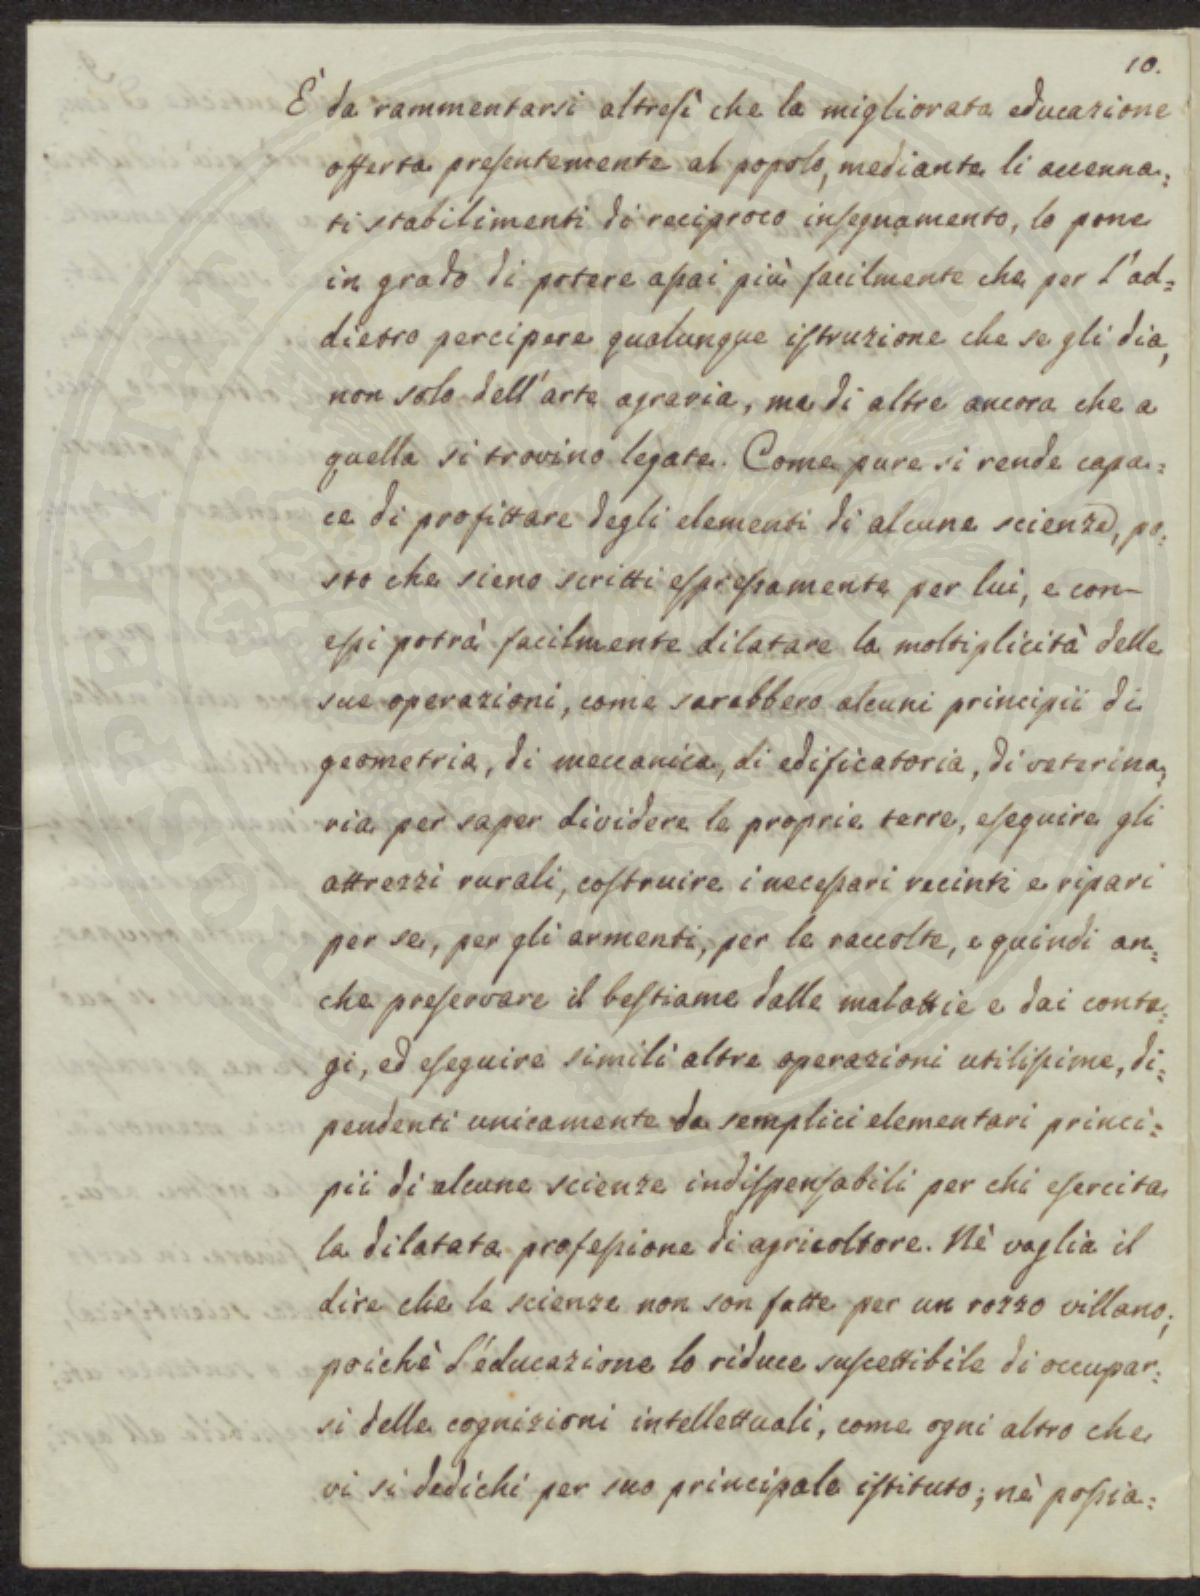 10.
È da rammentarsi altresì che la migliorata educazione
offerta presentemente al popolo, mediante li accenna=
ti stabilimenti di reciproco insegnamento, lo pone
in grado di potere assai più facilmente che per l'ad=
dietro percipere qualunque istruzione che se gli dia,
non solo dell'arte agraria, ma di altre ancora che a
quella si trovino legate. Come pure si rende capa=
ce di profittare degli elementi di alcune scienze, po=
sto che sieno scritti espressamente per lui, e con
essi potrà facilmente dilatare la moltiplicità delle
sue operazioni, come sarebbero alcuni principii di
geometria, di meccanica, di edificatoria, di veterina=
ria per saper dividere le proprie terre, eseguire gli
attrezzi rurali, costruire i necessari recinti e ripari
per se, per gli armenti, per le raccolte, e quindi an=
che preservare il bestiame dalle malattie e dai conta=
gi, ed eseguire simili altre operazioni utilissime, di=
pendenti unicamente da semplici elementari princi=
pii di alcune scienze indispensabili per chi esercita
la dilatata professione di agricoltore. Nè vaglia il
dire che le scienze non son fatte per un rozzo villano;
poichè l'educazione lo riduce suscettibile di occupar=
si delle cognizioni intellettuali, come ogni altro che
vi si dedichi per suo principale istituto; nè possia=